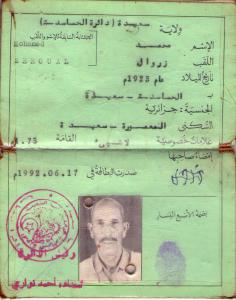 ولاية سعيدة (دائرة الحساسنة)
الكتابة السابقة للإسم واللقب
Mohamed
ZEROUAL
الإسم محمد
اللقب زروال
تاريخ الميلاد عام 1925م
ب الحساسنة - سعيدة
الجنسية: جزائرية
السكنى المعمورة - سعيدة
علامات خصوصية لاشيء القامة 1.75
إمضاء صاحبها
صدرت البطاقة في 1992.06.17م
بصمة الأصبع اليسار
رئيس الدائرة
أحمد نواري